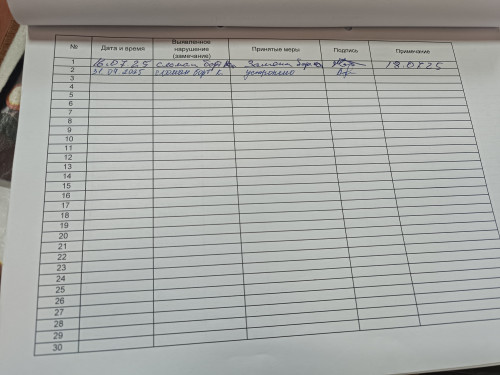 № Дата и время Выявленное нарушение (замечание) Принятые меры Подпись Примечание
1 16.07.25 сломан борт Замена 18.07.25
2 31.07.2025 сломан борт устранено
3
4
5
6
7
8
9
10
11
12
13
14
15
16
17
18
19
20
21
22
23
24
25
26
27
28
29
30